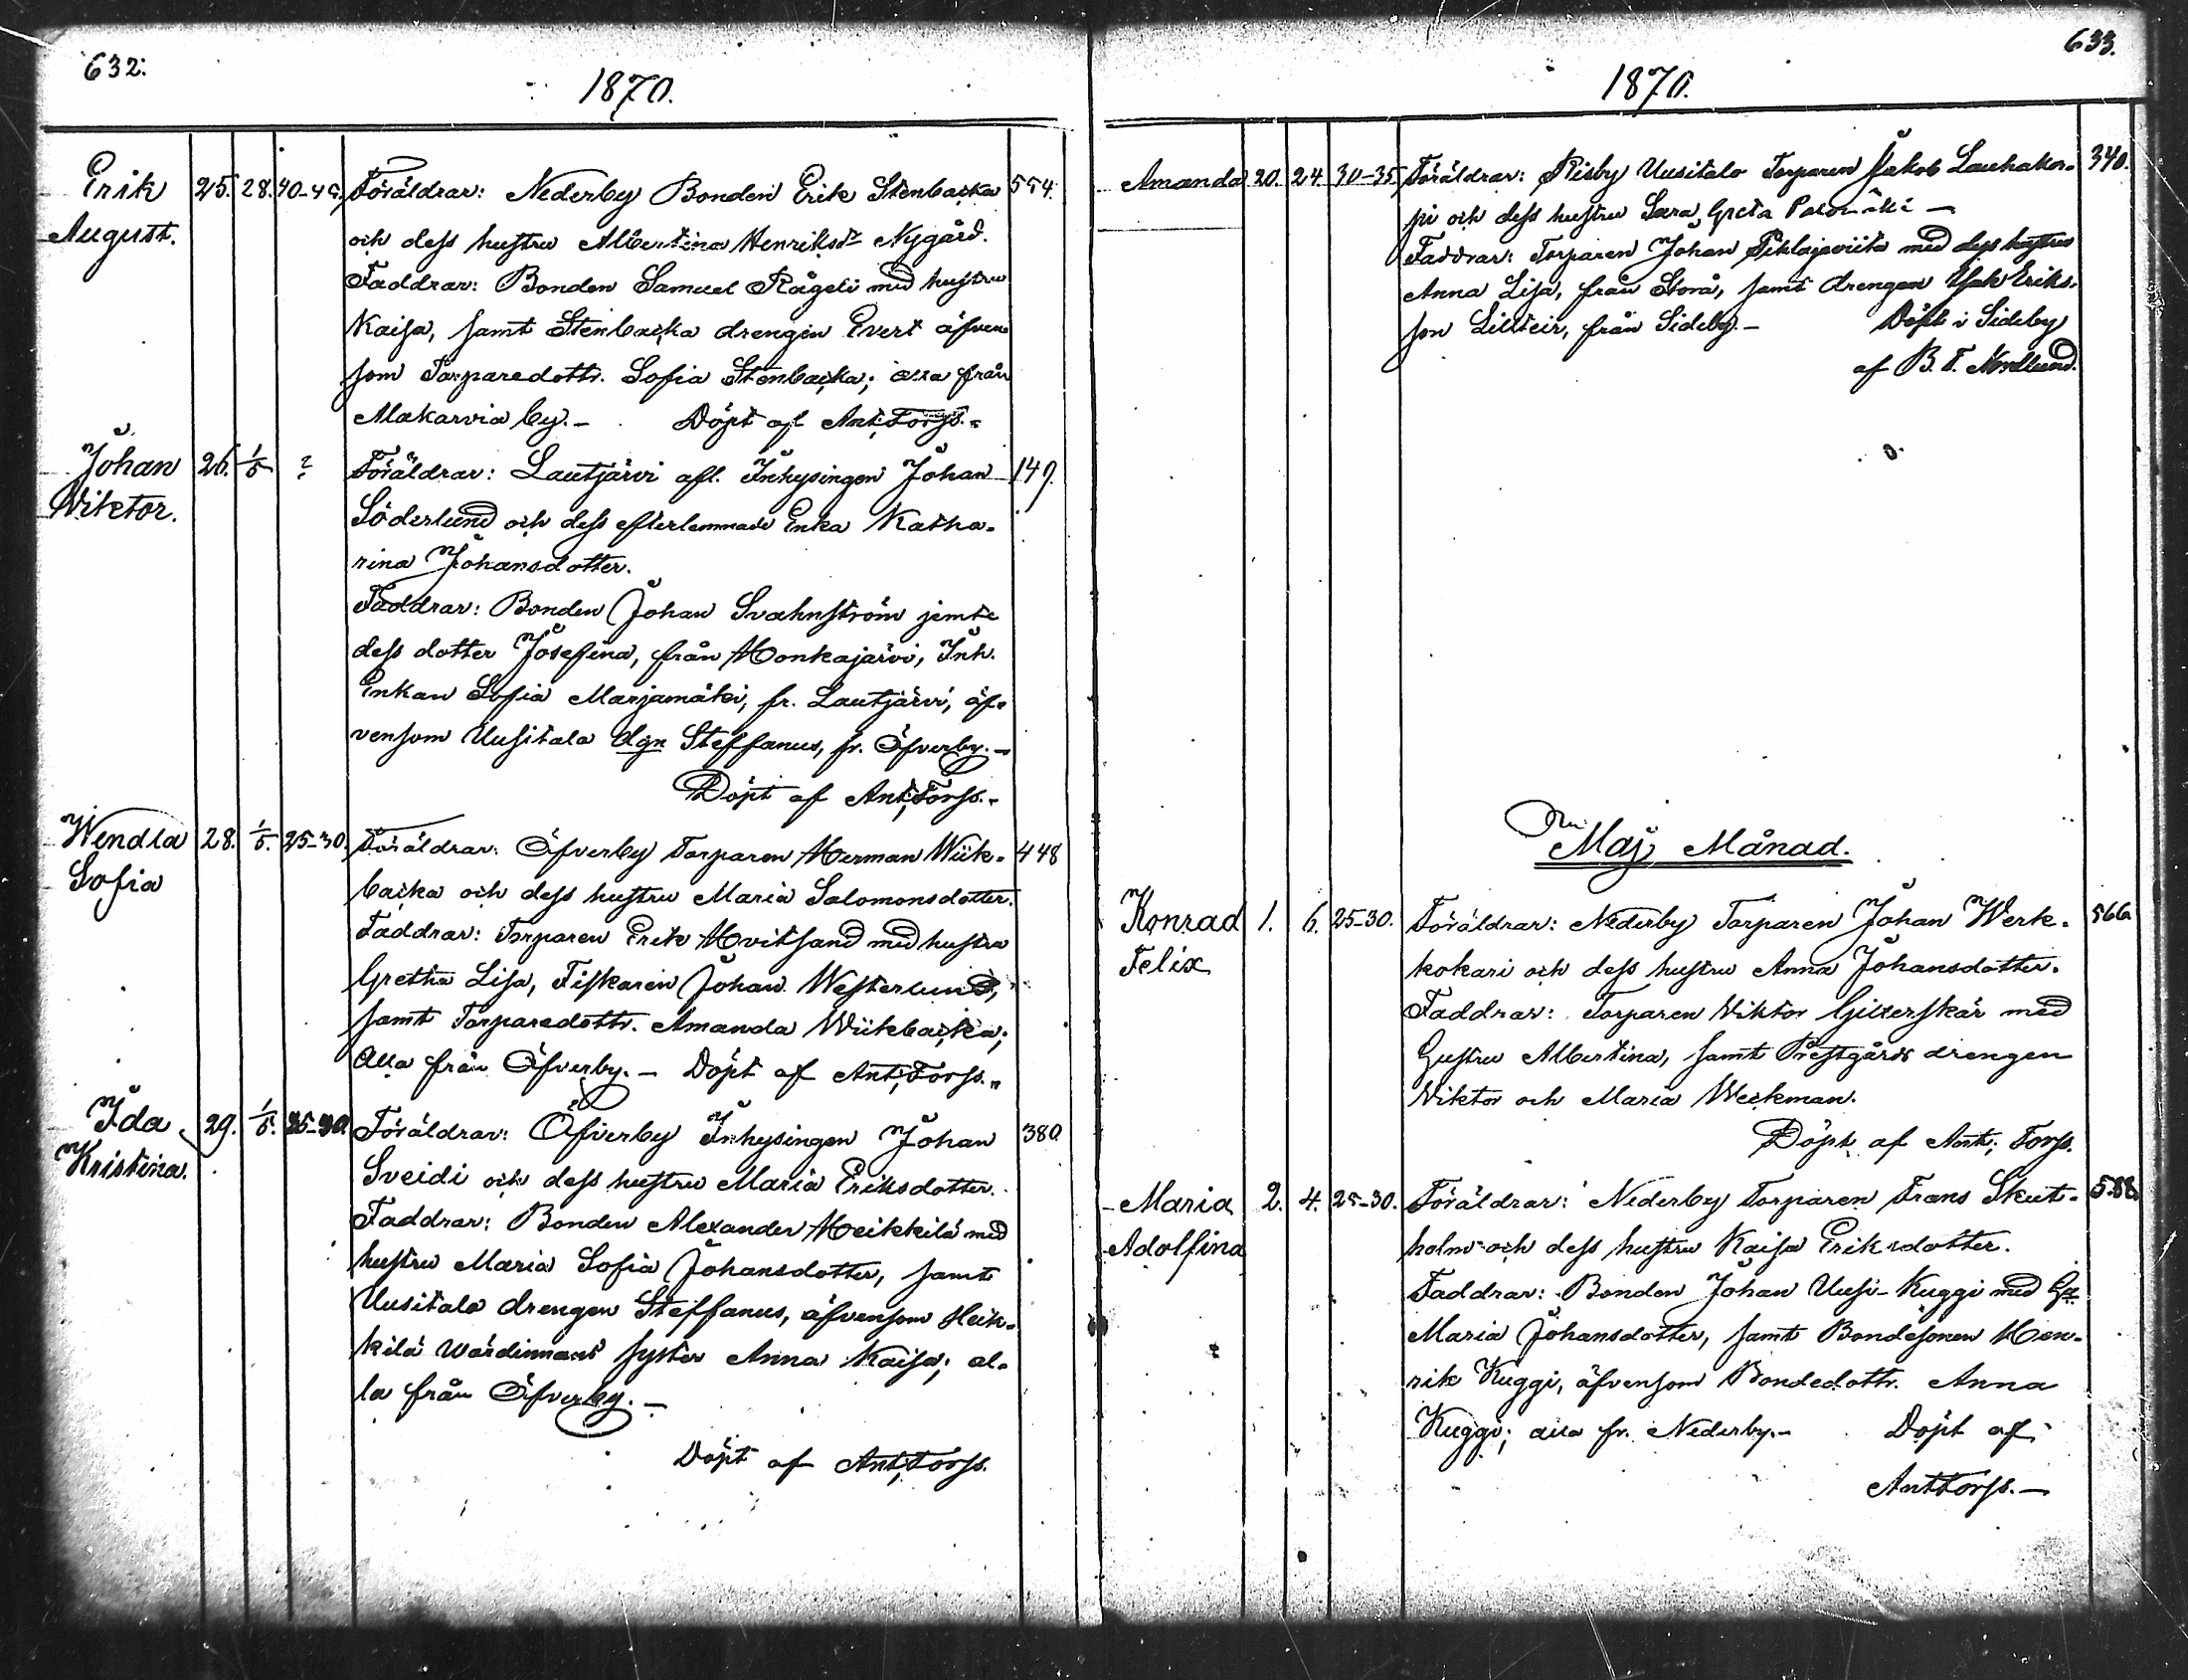 632.
1870.
Erik 25. 28. 40-45. Föräldrar: Nederby Bonden Erik Stenbacka 554.
August. och dess hustru Albertina Henriksdr Nygård.
Faddrar: Bonden Samuel Rågeli med hustru
Kaisa, samt Stenbacka drengen Evert äfven
som Torparedottr. Sofia Stenbacka; alla från
Makarvia by.- Döpt af Ant; Forss.-
Johan 26. 1/5 ? Föräldrar: Lautjärvi afl. Inhysingen Johan 149.
Viktor. Söderlund och dess efterlemnade Enka Katha-
rina Johansdotter.
Faddrar: Bonden Johan Svahnström jemte
dess dotter Josefina, från Honkajärvi, Inh.
Enkan Sofia Marjamäki, fr. Lautjärvi, äf-
vensom Uusitalo dgn Steffanus, fr. Öfverby.-
Döpt af Ant; Forss.-
Wendla 28. 1/5. 25-30. Föräldrar: Öfverby Torparen Herman Wiik- 448
Sofia backa och dess hustru Maria Salomonsdotter.
Faddrar: Torparen Erik Hvitsand med hustru
Gretha Lisa, Fiskaren Johan Westerlund,
samt Torparedottr. Amanda Wiikbacka;
Alla från Öfverby.- Döpt af Ant; Forss.-
Ida 29. 1/5. 25-30. Föräldrar: Öfverby Inhysingen Johan 380.
Kristina. Sveidi och dess hustru Maria Eriksdotter.
Faddrar: Bonden Alexander Heikkilä med
hustru Maria Sofia Johansdotter, samt
Uusitalo drengen Steffanus, äfvensom Heik-
kilä Wärdinnans syster Anna Kaisa; al-
la från Öfverby.-
Döpt af Ant; Forss.
633.
1870.
Amanda 20. 24. 30-35. Föräldrar: Risby Uusitalo Torparen Jakob Lauhakos- 340.
pi och dess hustru Sara Greta Palomäki -
Faddrar: Torparen Johan med dess hustru
Anna Lisa, från Storå, samt drengen Isak Eriks-
son Lillteir, från Sideby.- Döpt i Sideby
af B. T. Nordlund.
Maj Månad.
Konrad 1. 6. 25-30. Föräldrar: Nederby Torparen Johan Werk- 566
Felix kokari och dess hustru Anna Johansdotter.
Faddrar: Torparen Viktor Gillerskär med
Hustru Albertina, samt Prestgårds drengen
Viktor och Maria Weckman.
Döpt af Ant; Forss.
Maria 2. 4. 25-30. Föräldrar: Nederby Torparen Frans Skut- 588.
Adolfina holm och dess hustru Kaisa Eriksdotter.
Faddrar: Bonden Johan Uusi-Kuggi med Hu
Maria Johansdotter, samt Bondesonen Hen-
rik Kuggi, äfvensom Bondedottr. Anna
Kuggi; alla fr. Nederby.- Döpt af
Ant Forss.-